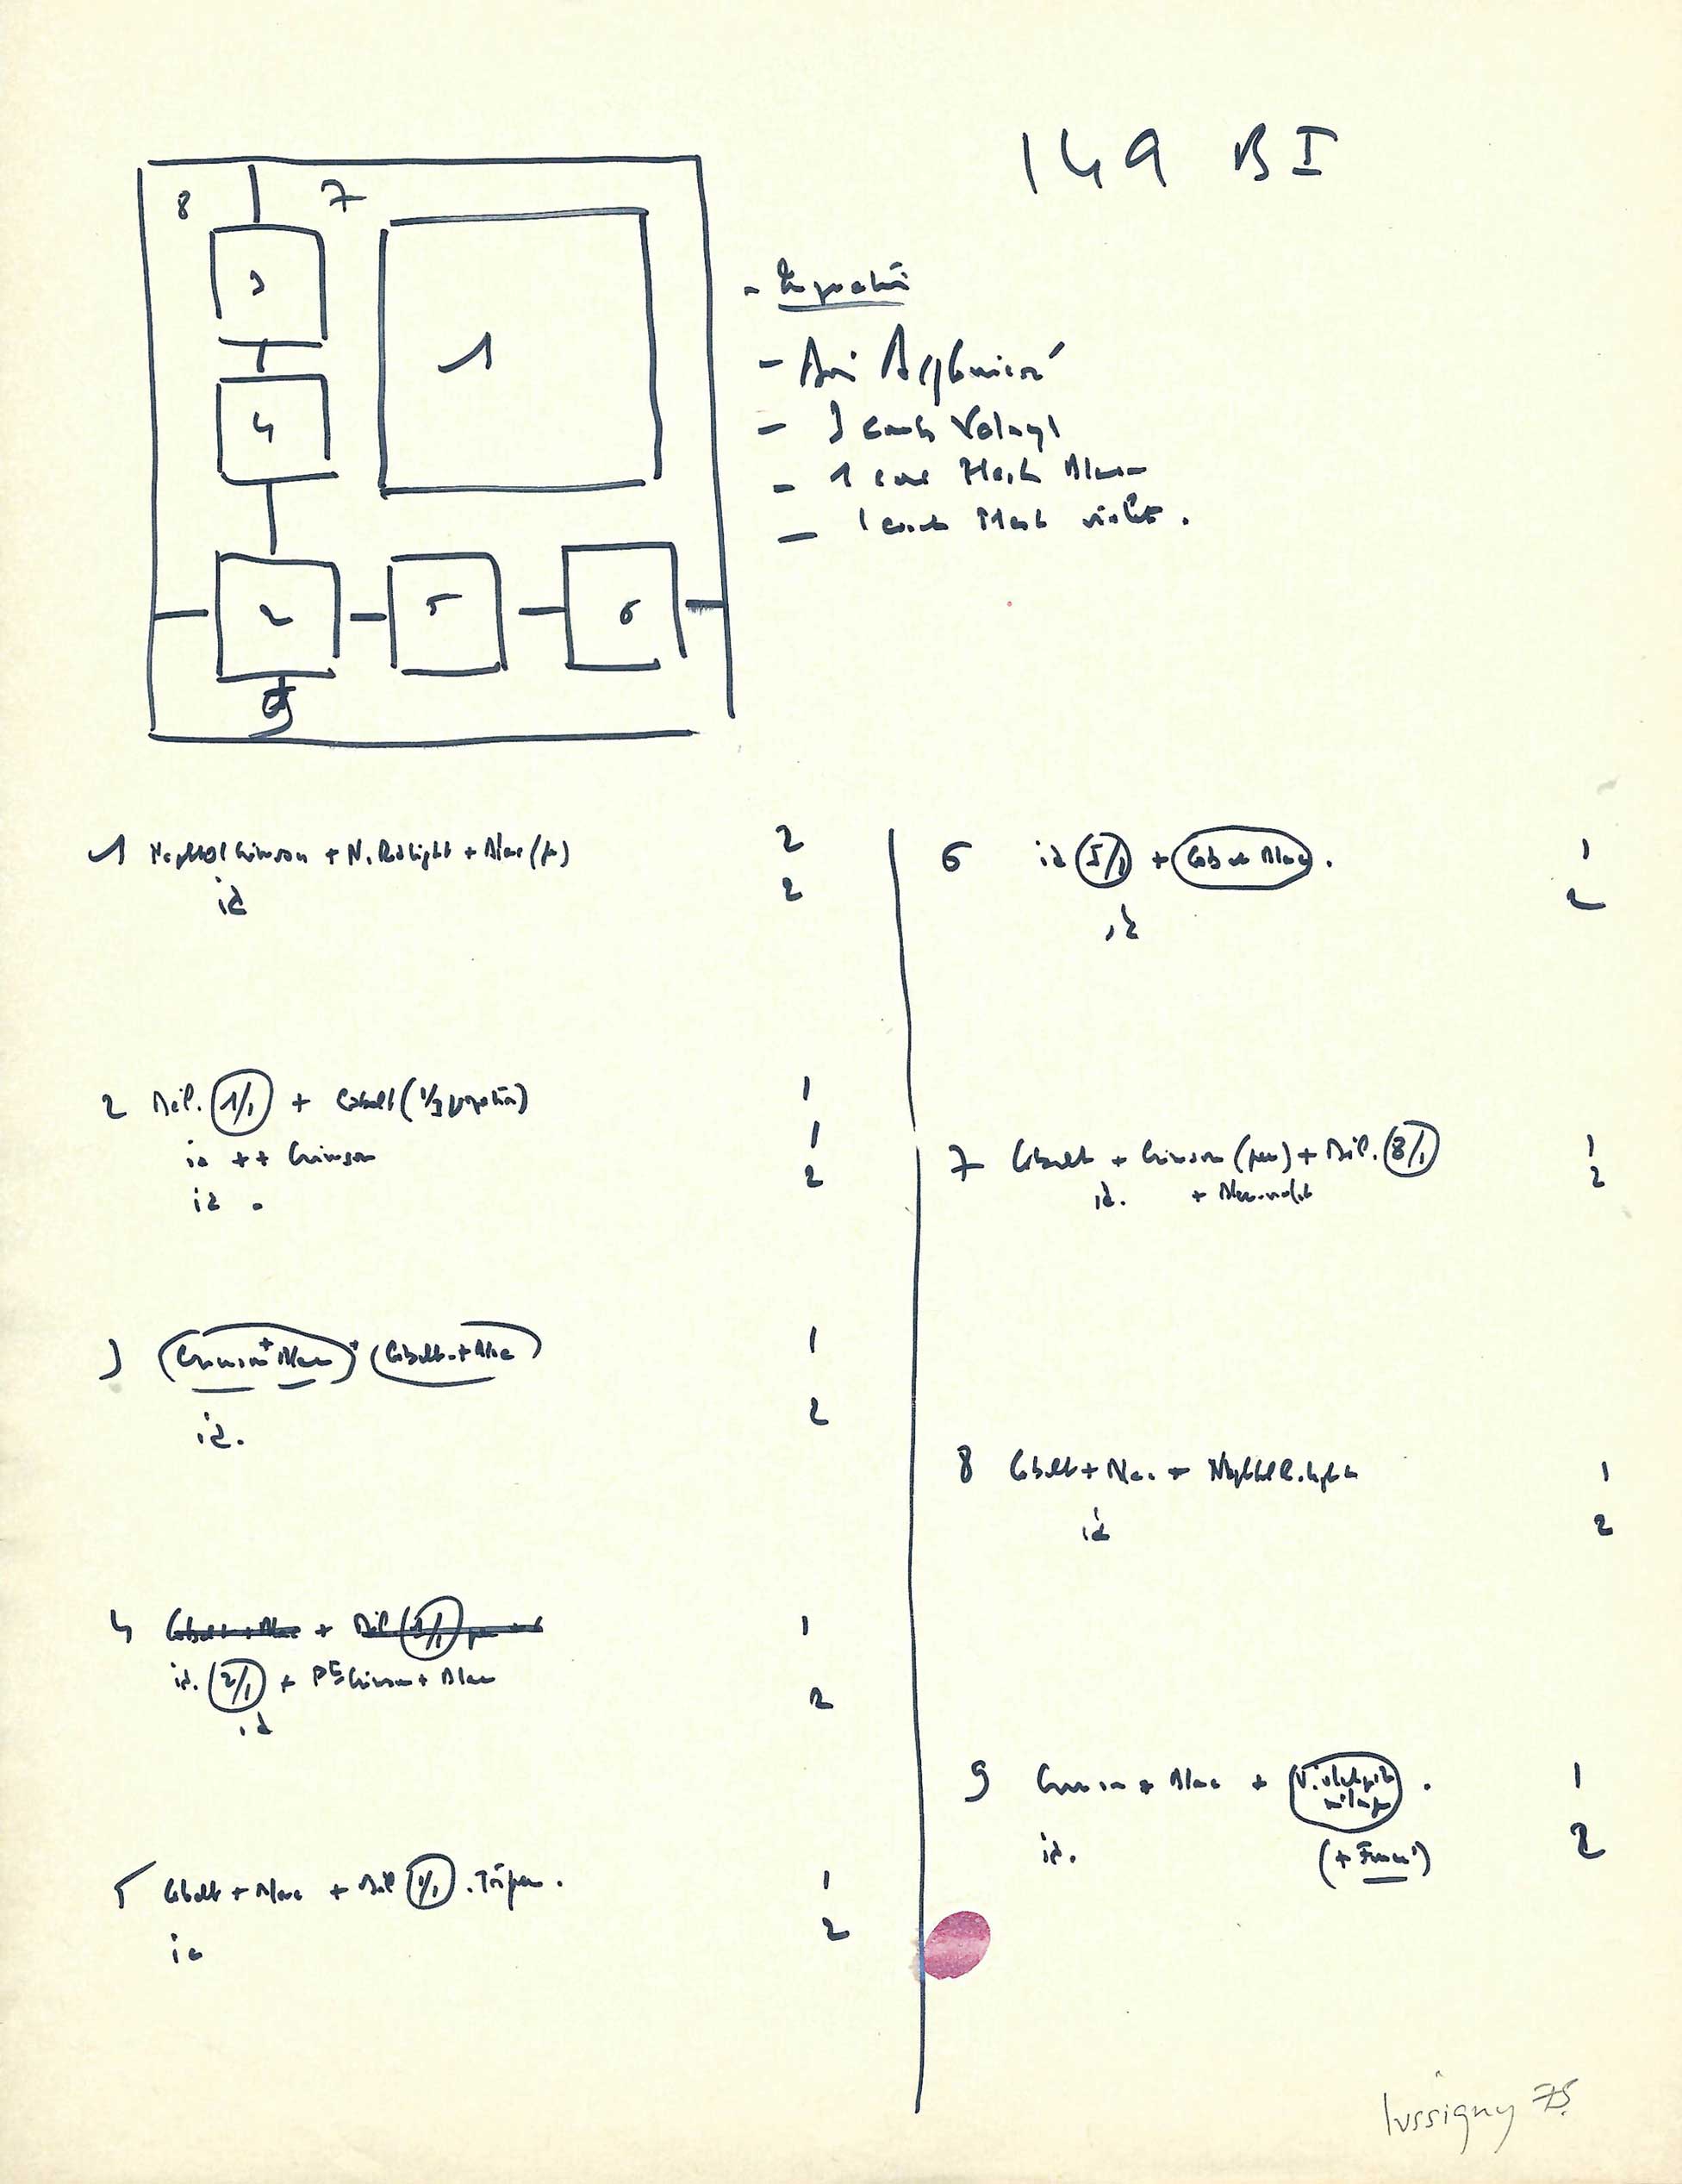 149 BI
8 7
3
1
4
2 5 6
9
- Préparation
- 3 couches Volnyl
- 1 couche Mesh Blanc
- 1 couche Mesh violet.
1 Naphtol Crimson + N. Red light + Blanc (pu) 2
id 2
2 Mél. 1/1 + Cobalt (1/3 proportion) 1
id ++ Crimson 1
id . 2
3 (Crimson + Blanc) + (Cobalt + Blanc) 1
id. 2
4 Cobalt + Blanc + Mél 1
id. 2/1 + Crimson + Blanc
id 2
5 Cobalt + Blanc + Mél 1/1 . 1
id 2
6 id 5/1 + Cobalt Blanc . 1
id 2
7 Cobalt + Crimson (peu) + Mél. 8/1 1
id. + Blanc-violet 2
8 Cobalt + Blanc + Naphtol R. light 1
id 2
9 Crimson + Blanc + Violet mélange . 1
id. (+ Foncé) 2
lussigny 75.